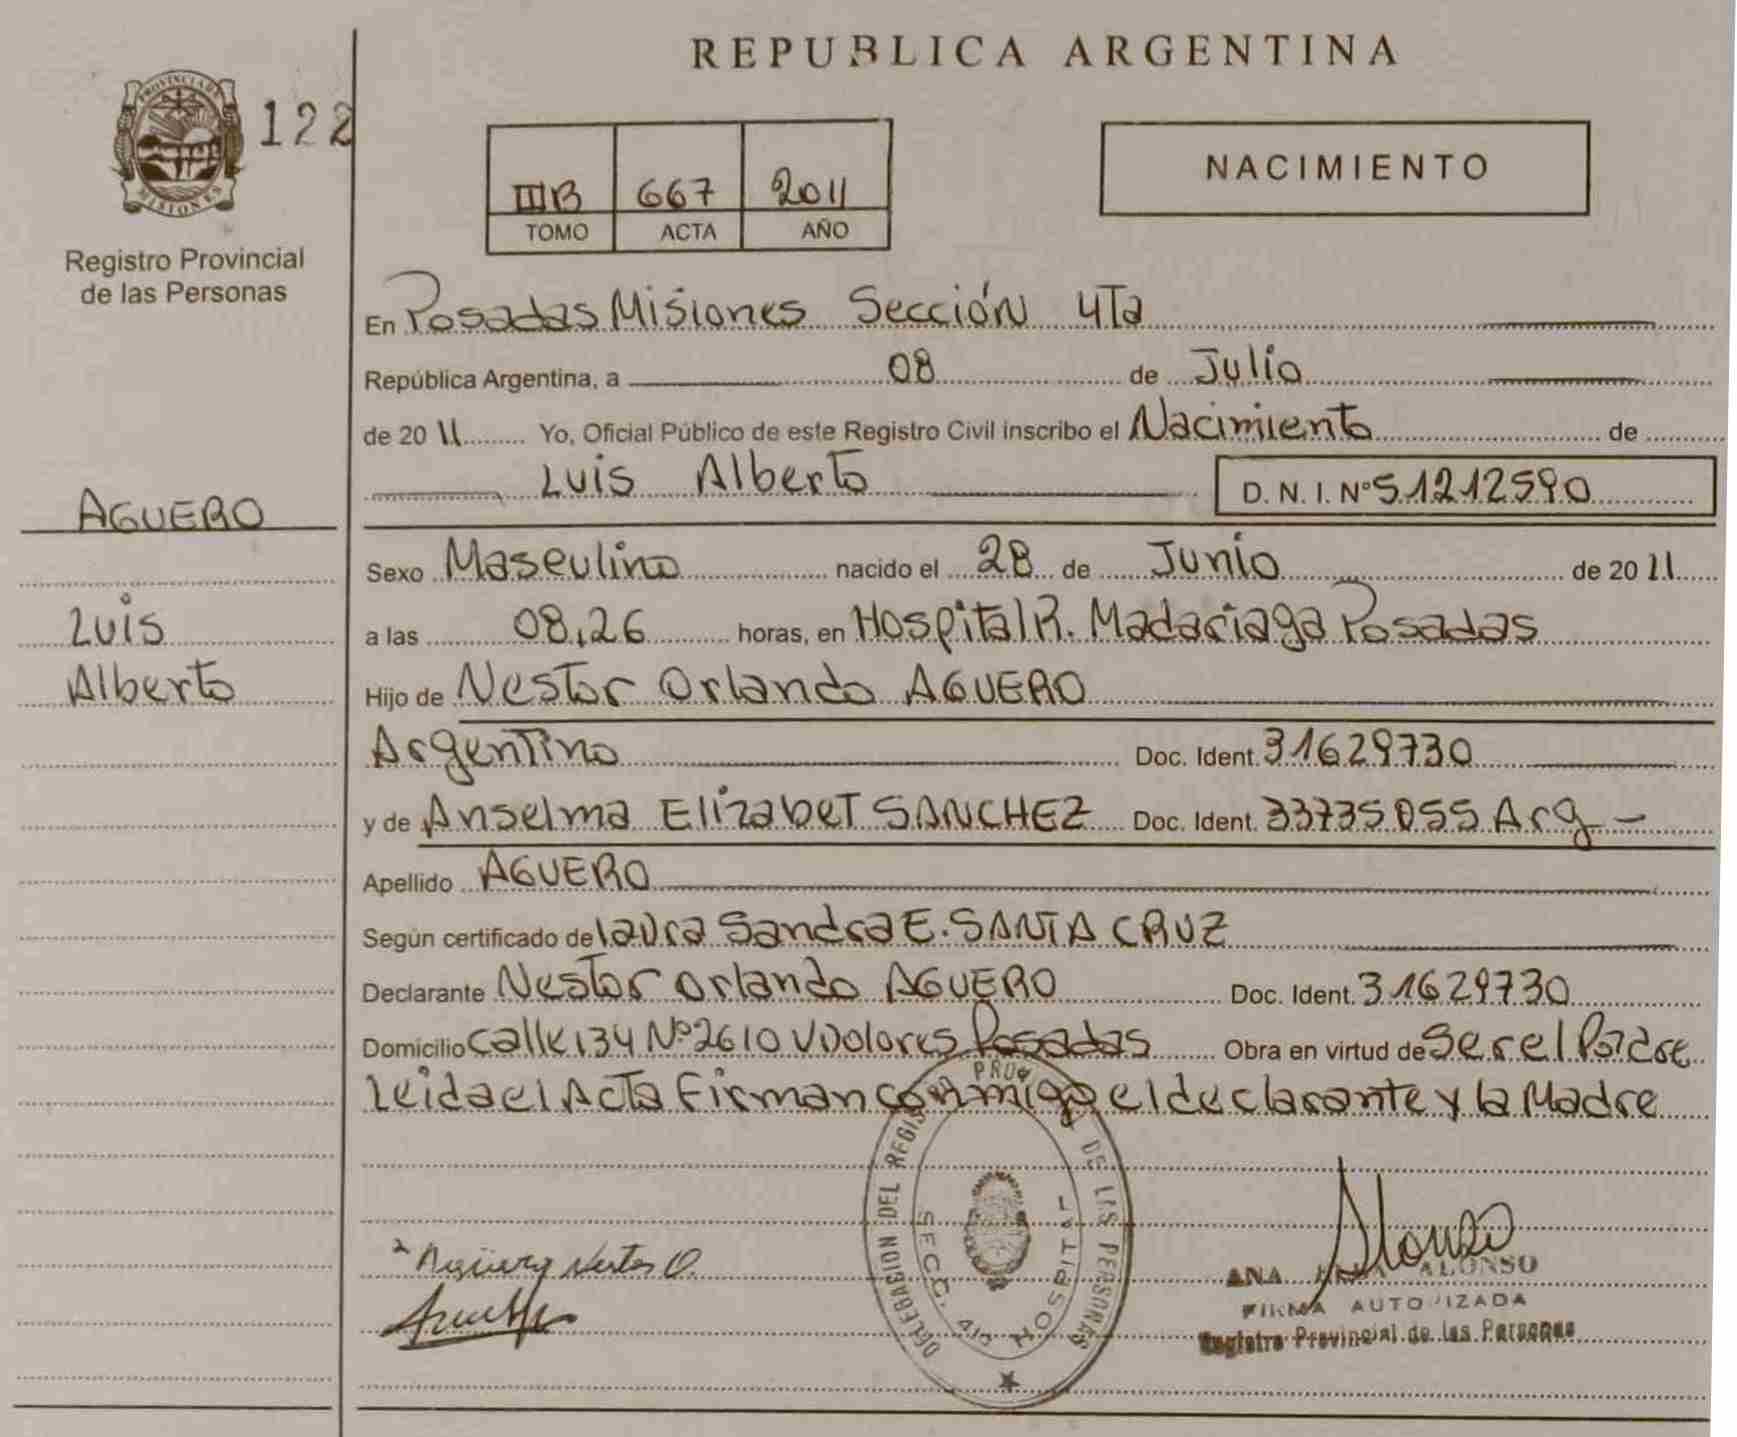 REPUBLICA ARGENTINA
PROVINCIA DE
MISIONES
122
Registro Provincial
de las Personas
IIIB 667 2011
TOMO ACTA AÑO
NACIMIENTO
En Posadas Misiones Sección 4Ta
República Argentina, a 08 de Julio
de 2011 Yo, Oficial Público de este Registro Civil inscribo el Nacimiento de
Luis Alberto D. N. I. Nº 51212590
AGUERO
Luis
Alberto
Sexo Masculino nacido el 28 de Junio de 2011
a las 08,26 horas, en Hospital R. Madariaga Posadas
Hijo de Nestor Orlando AGUERO
Argentino Doc. Ident. 31629730
y de Anselma Elizabet SANCHEZ Doc. Ident. 33735055 Arg -
Apellido AGUERO
Según certificado de Laura Sandra E. SANTA CRUZ
Declarante Nestor Orlando AGUERO Doc. Ident. 31629730
Domicilio Calle 134 Nº 2610 V Dolores Posadas Obra en virtud de Ser el Padre
Leida el Acta Firman conmigo el declarante y la Madre
DELEGACION DEL REGISTRO PROV DE LAS PERSONAS
SECC. 4ta HOSPITAL
Alonso
ANA ALONSO
FIRMA AUTORIZADA
Registro Provincial de las Personas